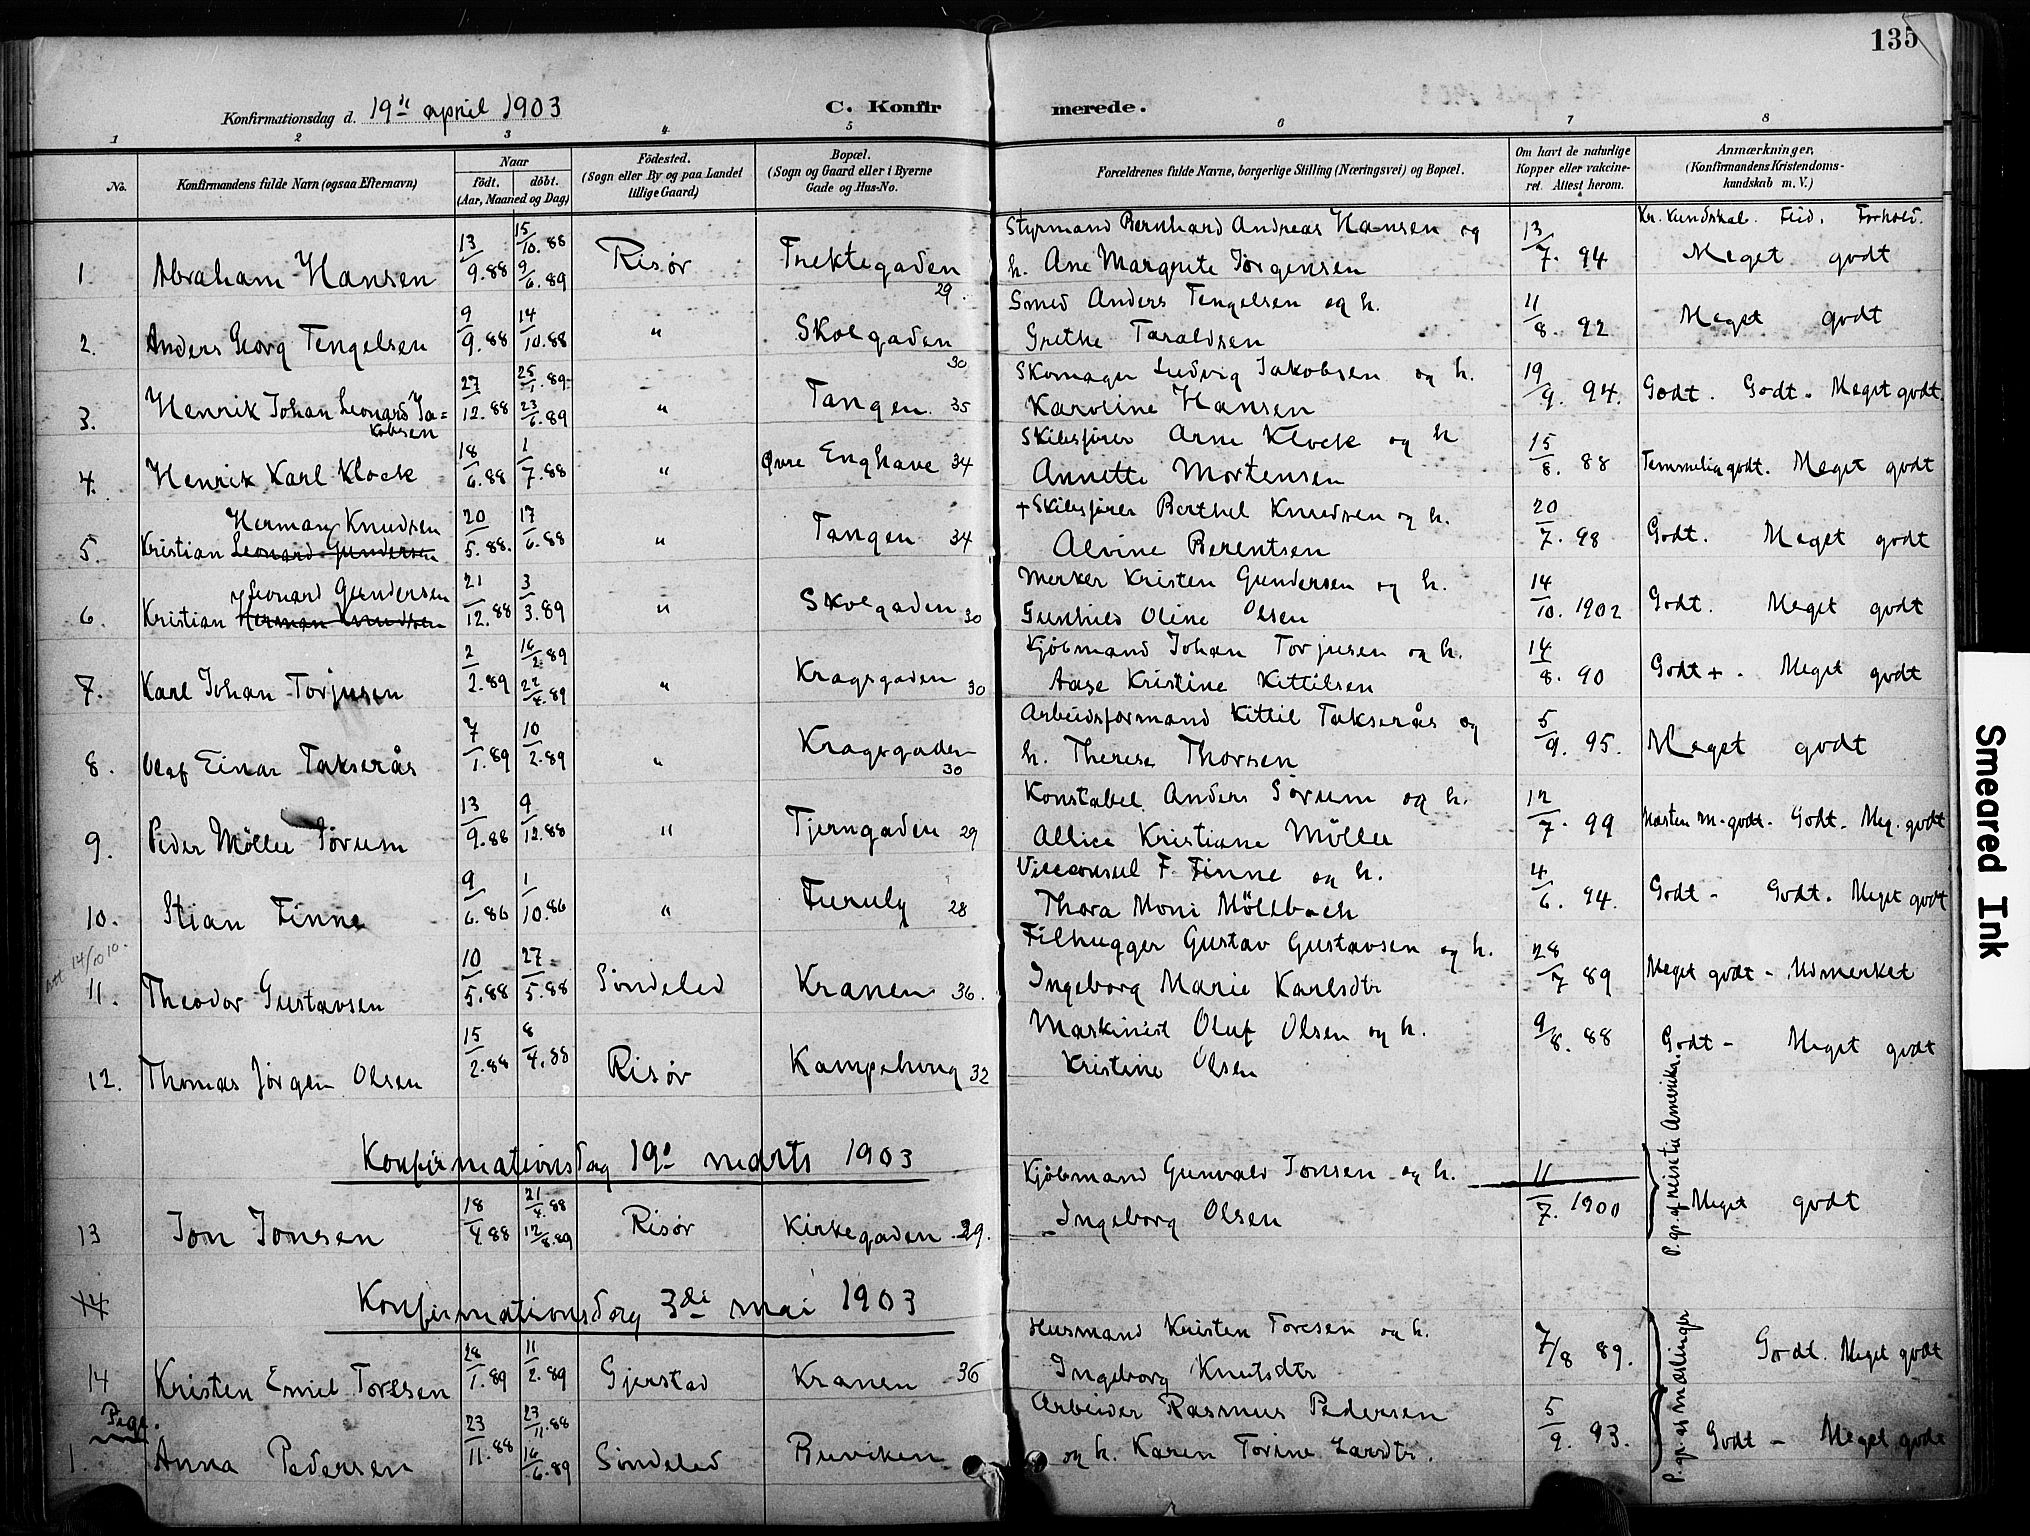 135
Konfirmationsdag d. 19de april 1903
C. Konfirmerede.
1 2 3 4 5 6 7 8
No.
Konfirmandens fulde Navn (ogsaa Efternavn)
Naar
født. døbt.
(Aar, Maaned og Dag)
Fødested.
(Sogn eller By og paa Landet
tillige Gaard)
Bopæl.
(Sogn og Gaard eller i Byerne
Gade og Hus-No.
Forældrenes fulde Navne, borgerlige Stilling (Næringsvei) og Bopæl.
Om havt de naturlige
Kopper eller vakcine-
ret. Attest herom.
Anmærkninger,
(Konfirmandens Kristendoms-
kundskab m. V.)
Kr. kundskab. Flid. Forhold.
1. Abraham Hansen 13/9.88 15/10.88 9/6.89 Risør Trektegaden 29. Styrmand Bernhard Andreas Hansen og
h. Ane Margrete Jørgensen 13/7. 94 Meget godt
2. Anders Georg Tengelsen 9/9.88 14/10.88 " Skolgaden 30 Smed Anders Tengelsen og h.
Grethe Taraldsen 11/8. 92 Meget godt
3. Henrik Johan Leonard Ja-
kobsen 27/12.88 25/1.89 23/6.89 " Tangen 35 Skomager Ludvig Jakobsen og h.
Karoline Hansen 19/9. 94. Godt. Godt. Meget godt.
4. Henrik Karl Klock 18/6.88 1/7.88 " Øvre Enghave 34 Skibsfører Arne Klock og h
Annette Mortensen 15/8. 88 Temmelig godt. Meget godt
Herman Knudsen
5. Kristian Leonard Gundersen 20/5.88. 17/6.88 " Tangen 34 + Skibsfører Berthel Knudsen og h.
Alvine Berentsen 20/7. 98 Godt. Meget godt
Leonard Gundersen
6. Kristian Herman Knudsen 21/12.88 3/3.89 " Skolgaden 30 Merker Kristen Gundersen og h.
Gunhild Oline Olsen 14/10. 1902 Godt. Meget godt
7. Karl Johan Torjusen 2/2.89 16/2.89 22/4.89 " Kragsgaden 30 Kjøbmand Johan Torjusen og h.
Aase Kristine Kittilsen 14/8. 90 Godt +. Meget godt
8. Olaf Einar Takserås 7/1.89 10/2.89 " Kragsgaden 30 Arbeidsformand Kittil Takserås og
h. Therese Thorsen 5/9. 95. Meget godt
9. Peder Møller Sørum 13/9.88 9/12.88 " Tjerngaden 29 Konstabel Anders Sørum og h.
Allice Kristiane Møller 12/7. 99 Næsten M. godt. Godt. Meg. godt
10. Stian Finne 9/6.86 1/10.86 " Furuly 28 Viceconsul F. Finne og h.
Thora Moni Möllbach 4/6. 94. Godt - Godt. Meget godt
14/10 10.
11. Theodor Gustavsen 10/5.88 27/5.88 Søndeled Kranen 36. Filhugger Gustav Gustavsen og h.
Ingeborg Marie Karlsdtr 28/7 89 Meget godt - Udmerket
12. Thomas Jörgen Olsen 15/2.88 8/4.88 Risør Kampehaug 32 Maskinist Oluf Olsen og h.
Kristine Olsen 9/8. 88 Godt - Meget godt
Konfirmationsdag 19de marts 1903
13 Jon Jonsen 18/4 88 21/4.88 12/8.89 Risør Kirkegaden 29. Kjøbmand Gunvald Jonsen og h.
Ingeborg Olsen 11/7. 1900 P. gr. af reise til Amerika. Meget godt
14 Konfirmationsdag 3die mai 1903
14 Kristen Emil Toresen 28/1.89 11/2.89 Gjerstad Kranen 36 Husmand Kristen Toresen og h.
Ingeborg Knutsdtr 7/8 89. P. gr. as mæslinger Godt. Meget godt
Pige.
1. Anna Pedersen 23/11.88 23/11.88 16/6.89 Søndeled Buviken Arbeider Rasmus Pedersen
og h. Karen Torine Larsdtr. 5/9. 93. Godt - Meget godt
Smeared Ink